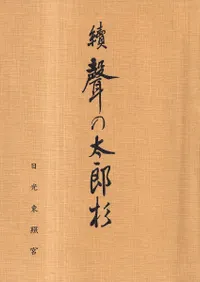 續 聲の太郎杉
日光東照宮